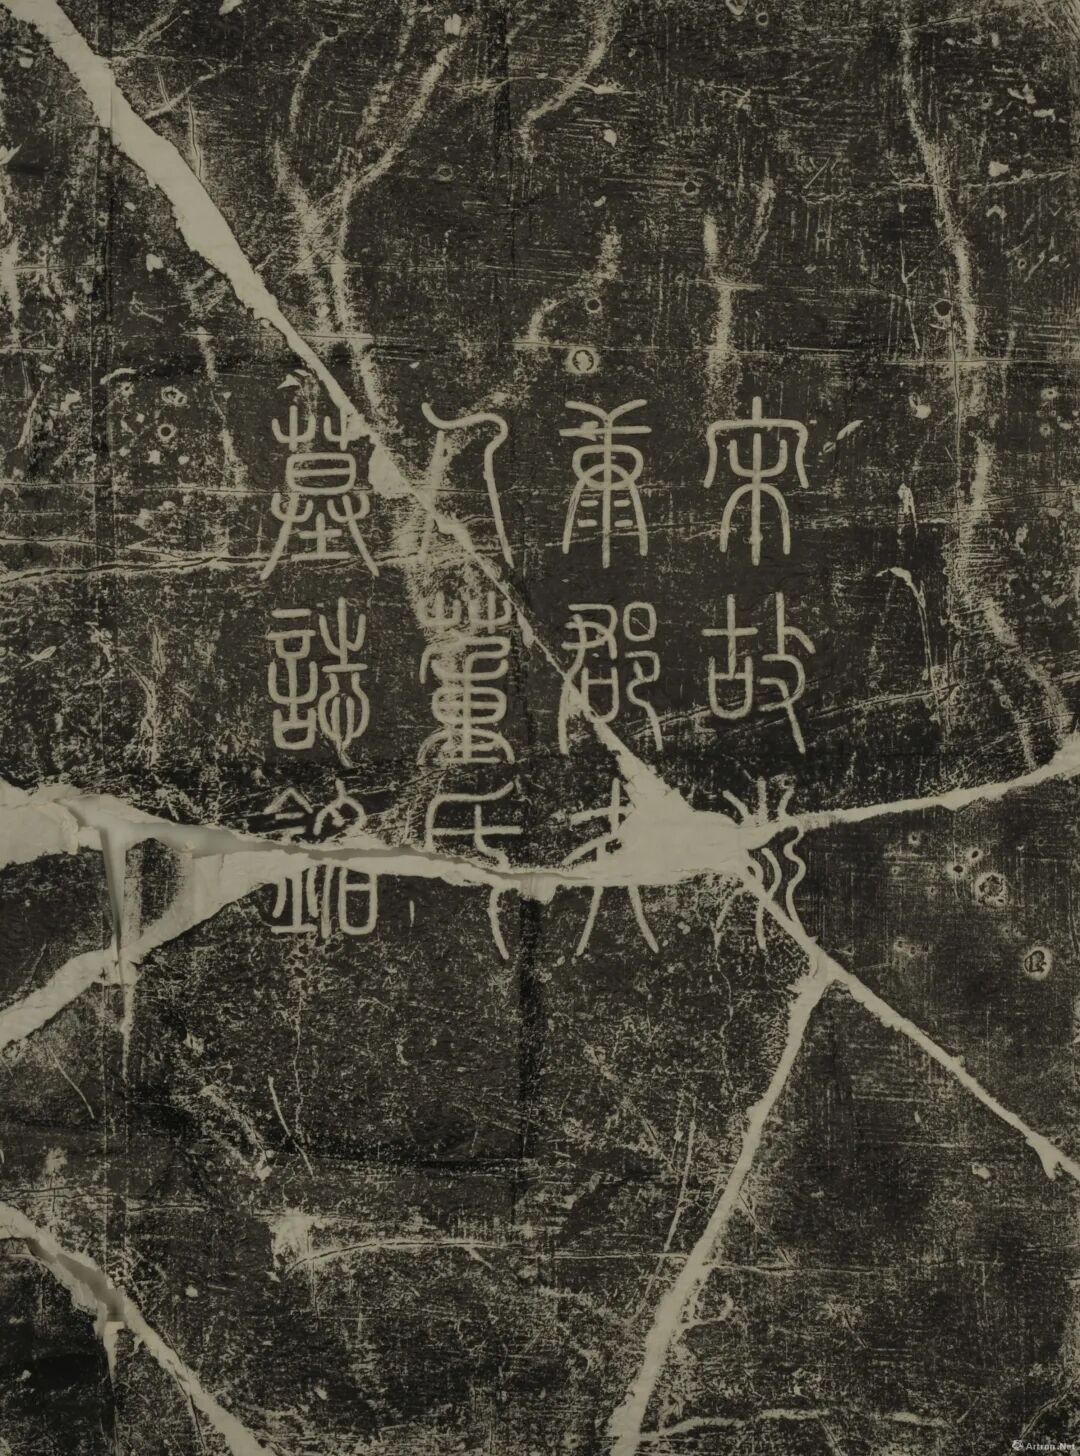 宋故永
康郡夫
人董氏
墓誌銘
Artron.Net